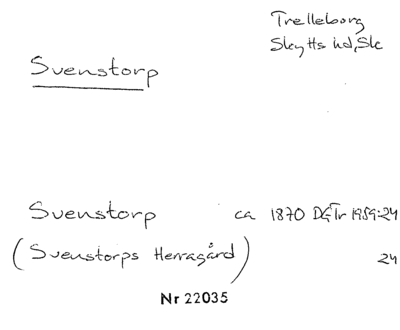 Trelleborg
Skytts hd, Sk
Svenstorp
Svenstorp ca 1870 DGTr 1959:24
(Svenstorps Herragård) 24
Nr 22035